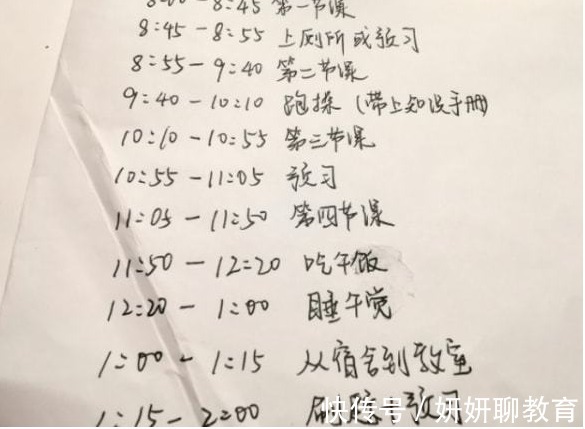 8:00 - 8:45 第一节课
8:45 - 8:55 上厕所或预习
8:55 - 9:40 第二节课
9:40 - 10:10 跑操 (带上知识手册)
10:10 - 10:55 第三节课
10:55 - 11:05 预习
11:05 - 11:50 第四节课
11:50 - 12:20 吃午饭
12:20 - 1:00 睡午觉
1:00 - 1:15 从宿舍到教室
1:15 - 2:00 预习
快传号 / 妍妍聊教育